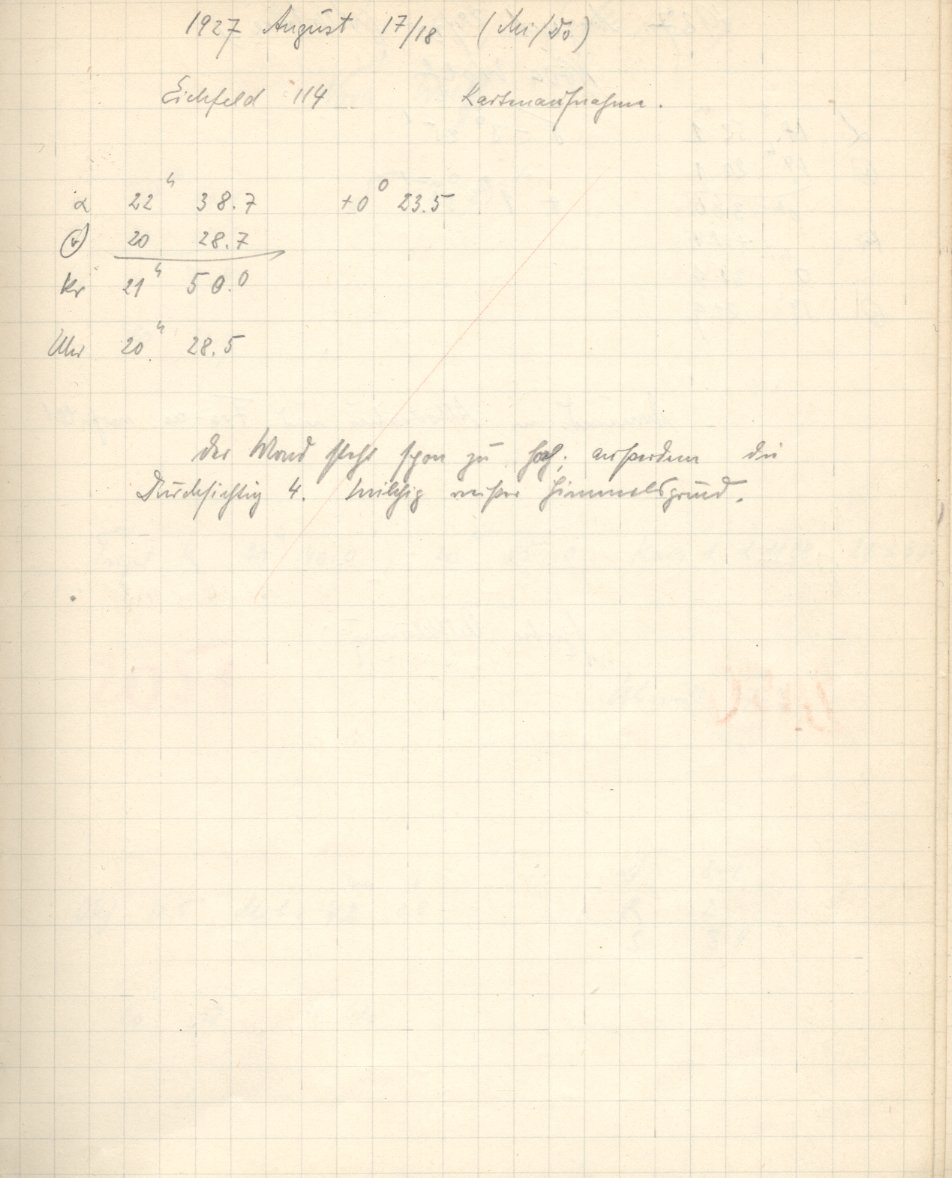 1927 August 17/18 (Mi/Do)
Eichfeld 114 Kartenaufnahme.
α 22h 38.7 +0° 23.5
20 28.7
21h 50.0
Uhr 20h 28.5
Der Mond steht schon zu hoch; außerdem die
Durchsichtig 4. Milchig weißer Himmelsgrund.